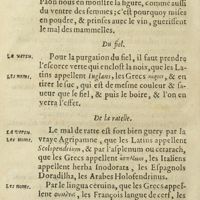 Paon nous en monstre la figure, comme aussi
du ventre des femmes ; c'est pourquoy mises
en poudre, & prinses auec le vin, guerissent
le mal des mammelles.
Du fiel.
La vertu. Pour la purgation du fiel, il faut prendre
l'escorce verte qui enclost la noix, que les La-
Les noms. tins appellent Iuglans, les Grecs & en
tirer le suc, qui est de mesme couleur & fa-
ueur que le fiel, & puis le boire, & l'on en
verra l'effet.
De la ratelle.
La vertu. Le mal de ratte est fort bien guery par la
Les noms. vraye Agripaume, que les Latins appellent
Scolopendrium, & par l'asplenum ou ceterach,
que les Grecs appellent les Italiens
appellent herba Inodorata, les Espagnols
Doradilha, les Arabes Holofendrimus.
Les noms. Par le lingua ceruina, que les Grecs appel-
lent les François langue de cerf, les